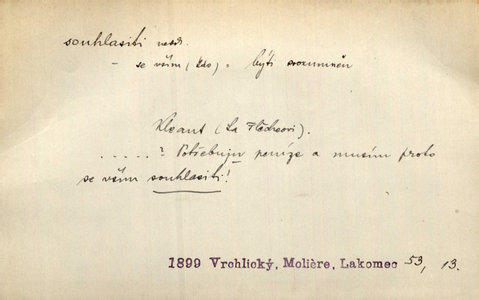 souhlasiti nedok.
– se vším (kdo) = býti srozuměn
Kleant (La Flècheovi).
. . . . . ? Potřebuju peníze a musím proto
se vším souhlasiti!
1899 Vrchlický, Molière, Lakomec 53, 13.